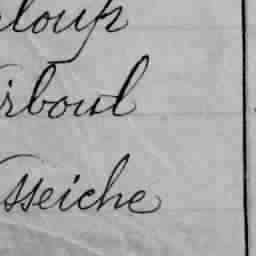 loup
rboul
sseiche